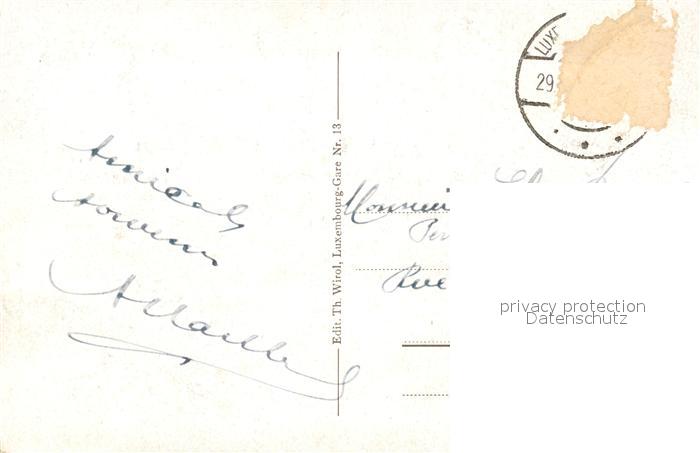 LUXE
29
Amical
souvenir
Edit. Th. Wirol, Luxembourg-Gare Nr. 13
Monsieur
Rue
privacy protection
Datenschutz